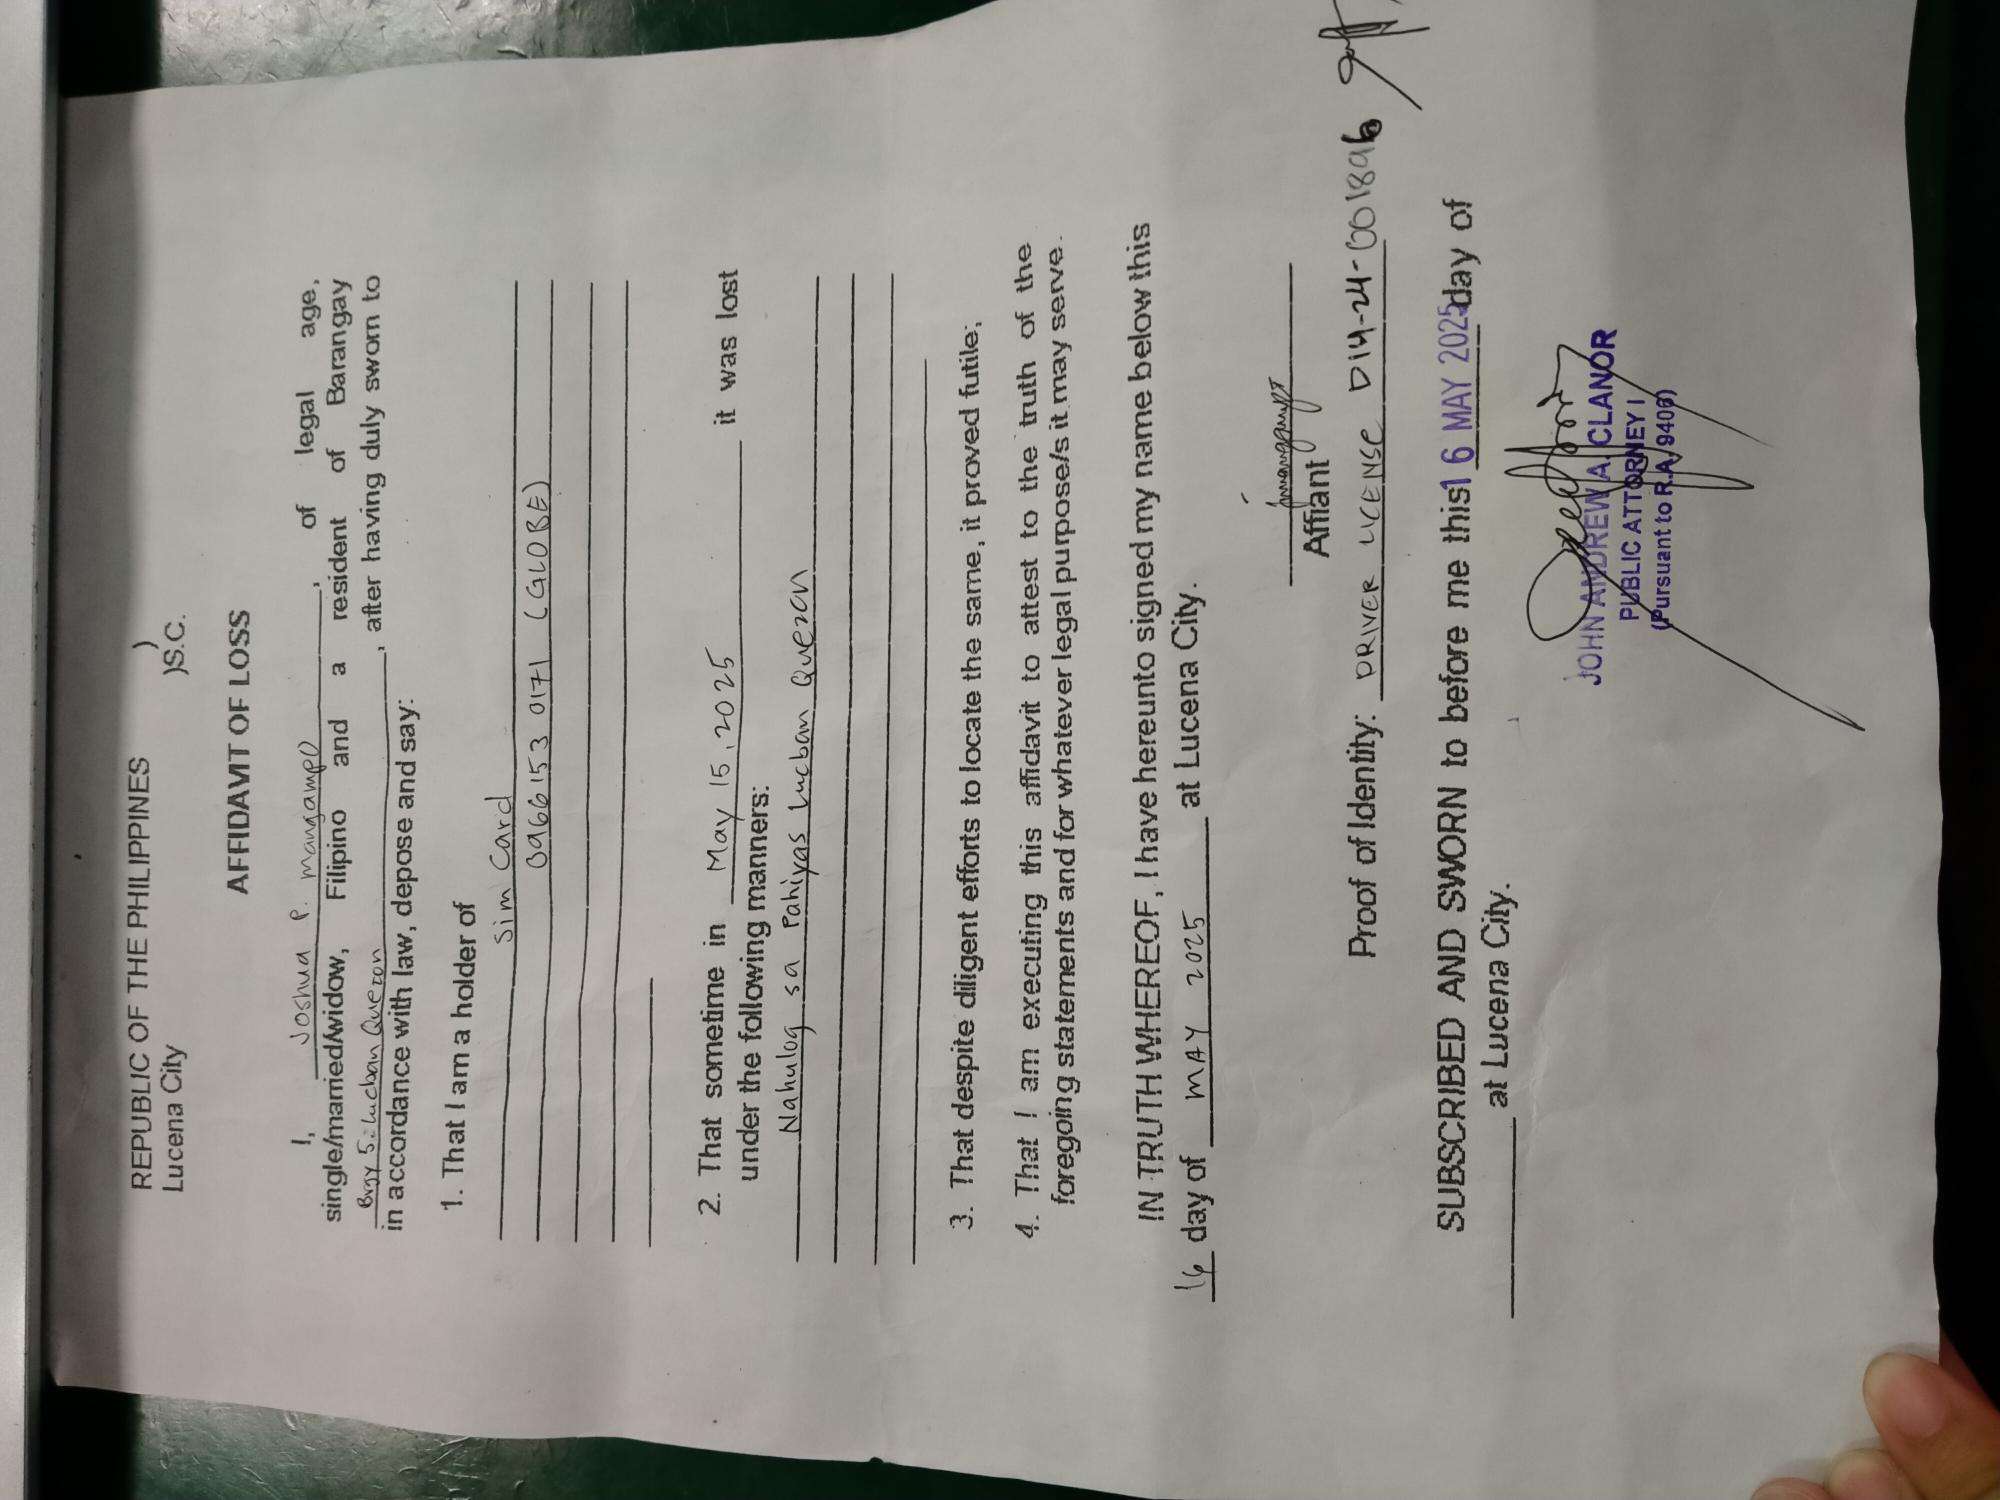 REPUBLIC OF THE PHILIPPINES )
Lucena City )S.C.
AFFIDAVIT OF LOSS
I, Joshua P. mangampo, of legal age,
single/married/widow, Filipino and a resident of Barangay
Brgy 5. Lucban Quezon, after having duly sworn to
in accordance with law, depose and say:
1. That I am a holder of
Sim Card
0966 153 0171 (GLOBE)
2. That sometime in May 15, 2025 it was lost
under the following manners:
Nahulog sa Pahiyas Lucban Quezon
3. That despite diligent efforts to locate the same, it proved futile;
4. That I am executing this affidavit to attest to the truth of the
foregoing statements and for whatever legal purpose/s it may serve.
IN TRUTH WHEREOF, I have hereunto signed my name below this
16 day of MAY 2025 at Lucena City.
Affiant
Proof of Identity: DRIVER LICENSE D14-24-001896
SUBSCRIBED AND SWORN to before me this 16 MAY 2025 day of
at Lucena City.
JOHN ANDREW A. CLANOR
PUBLIC ATTORNEY I
(Pursuant to R.A. 9406)